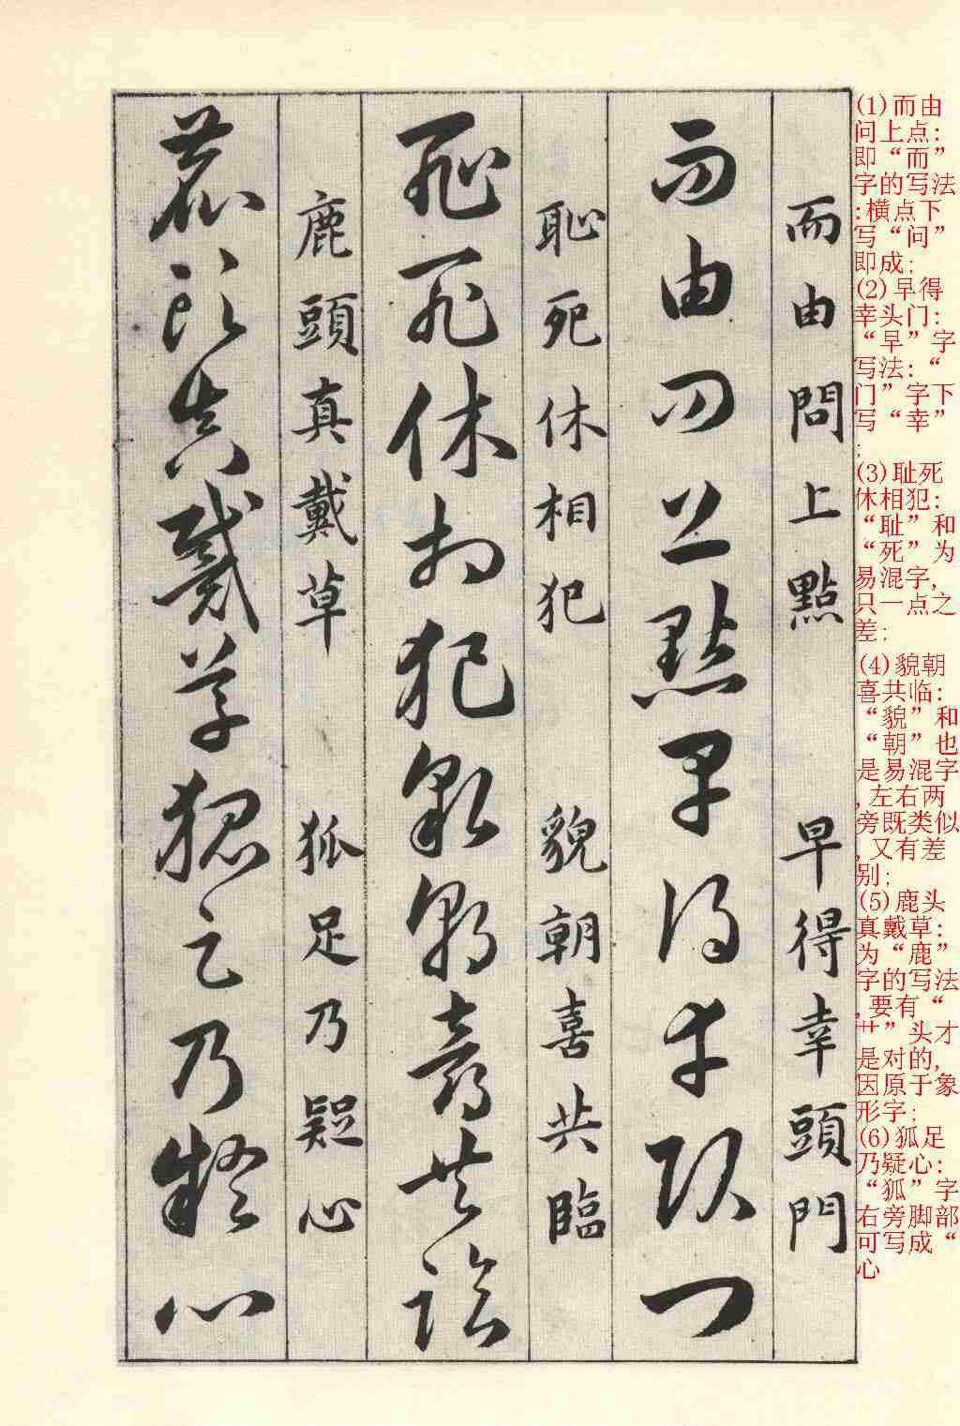 而由問上點 早得幸頭門
而由问上點早得幸頭門
恥死休相犯 貌朝喜共臨
恥死休相犯貌朝喜共臨
鹿頭真戴草 狐足乃疑心
鹿頭真戴草狐足乃疑心
(1)而由
问上点:
即“而”
字的写法
:横点下
写“问”
即成;
(2)早得
幸头门:
“早”字
写法:“
门”字下
写“幸”
;
(3)耻死
休相犯:
“耻”和
“死”为
易混字,
只一点之
差;
(4)貌朝
喜共临:
“貌”和
“朝”也
是易混字
,左右两
旁既类似
,又有差
别;
(5)鹿头
真戴草:
为“鹿”
字的写法
,要有“
艹”头才
是对的,
因原于象
形字;
(6)狐足
乃疑心:
“狐”字
右旁脚部
可写成“
心